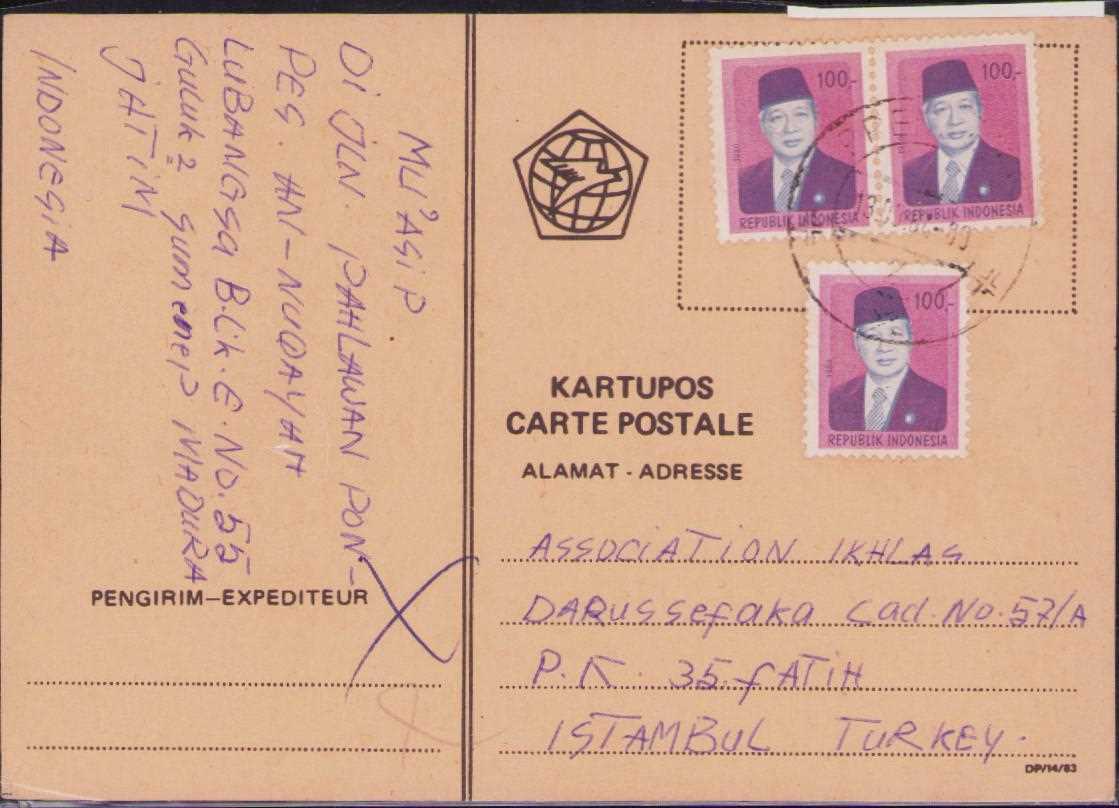 MU'ASIP
DI JLN. PAHLAWAN PON-
PES. AN-NUQAYAH
LUBANGSA BLik.E.No.55
Guluk2 Sumenep MADURA
JATIM
INDONESIA
PENGIRIM—EXPEDITEUR
100,-
REPUBLIK INDONESIA
100,-
REPUBLIK INDONESIA
100,-
REPUBLIK INDONESIA
KARTUPOS
CARTE POSTALE
ALAMAT - ADRESSE
ASSOCIATION IKHLAS
DARUSSefaka Cad. No. 57/A
P.K. 35. fATiH
ISTAMBUL TURKEY.
DP/14/83